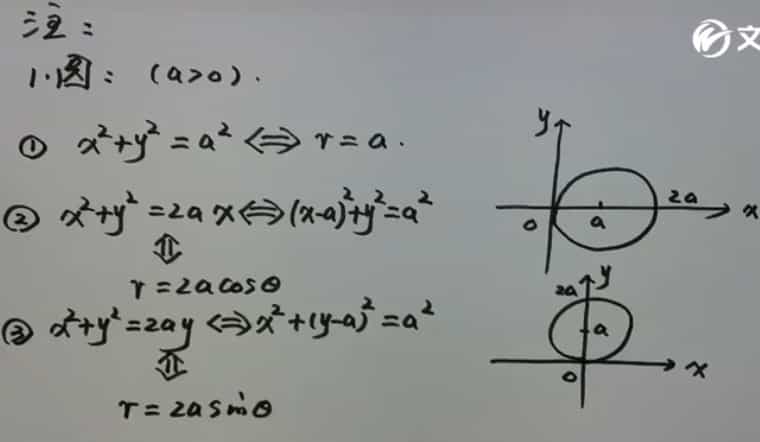 注：
1.圆：（a>0）.
① x²+y²=a² ⟺ r=a.
② x²+y²=2ax ⟺ (x-a)²+y²=a²
⇕
r=2acosθ
③ x²+y²=2ay ⟺ x²+(y-a)²=a²
⇕
r=2asinθ
y
2a
x
0
a
y
2a
a
x
0
文